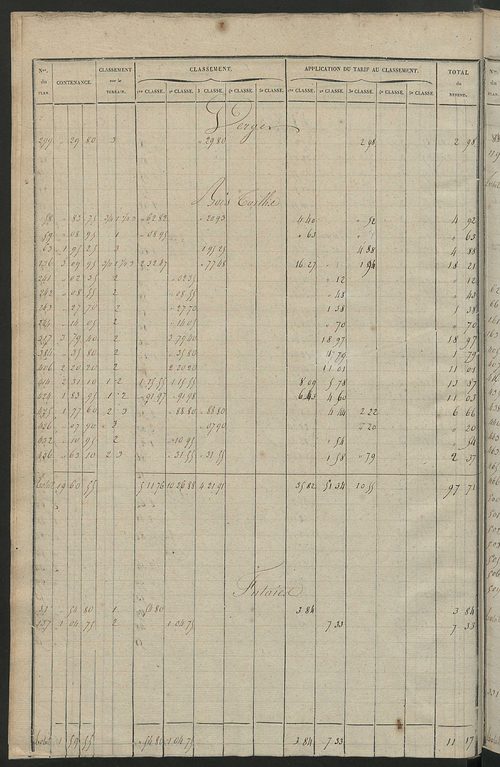 Nos. du PLAN. CONTENANCE. CLASSEMENT sur le TERRAIN. CLASSEMENT. APPLICATION DU TARIF AU CLASSEMENT. TOTAL du REVENU.
1re CLASSE. 2e CLASSE. 3 CLASSE. 4e CLASSE. 5e CLASSE. 1re CLASSE. 2e CLASSE. 3e CLASSE. 4e CLASSE. 5e CLASSE.
Verger
299 " 29 80 3 " 29 80 2 98 2 98
Bois Taillis
58 " 83 75 " 62 82 " 20 93 4 40 " 52 4 92
59 " 08 95 1 " 08 95 " 63 " 63
63 1 95 25 3 1 95 25 4 88 4 88
136 3 09 95 2 32 47 " 77 48 16 27 1 94 18 21
241 " 02 35 2 " 02 35 " 12 " 12
242 " 08 55 2 " 08 55 " 43 " 43
243 " 27 70 2 " 27 70 1 38 1 38
244 " 14 05 2 " 14 05 " 70 " 70
357 3 79 40 2 3 79 40 18 97 18 97
384 " 35 80 2 " 35 80 1 79 1 79
406 2 20 20 2 2 20 20 11 01 11 01
414 2 31 10 1 2 1 15 55 1 15 55 8 09 5 78 13 87
424 1 83 95 1 2 " 91 97 " 91 98 6 43 4 60 11 03
475 1 77 60 2 3 " 88 80 " 88 80 4 44 2 22 6 66
626 " 07 90 3 " 07 90 " 20 " 20
632 " 10 95 2 " 10 95 " 54 " 54
636 " 63 10 2 3 " 31 55 " 31 55 1 58 " 79 2 37
Total 19 60 55 5 11 76 10 26 88 4 21 91 35 82 51 34 10 55 97 71
Futaies
31 " 54 80 1 " 54 80 3 84 3 84
137 1 04 75 2 1 04 75 7 33 7 33
Total 1 59 55 " 54 80 1 04 75 3 84 7 33 11 17